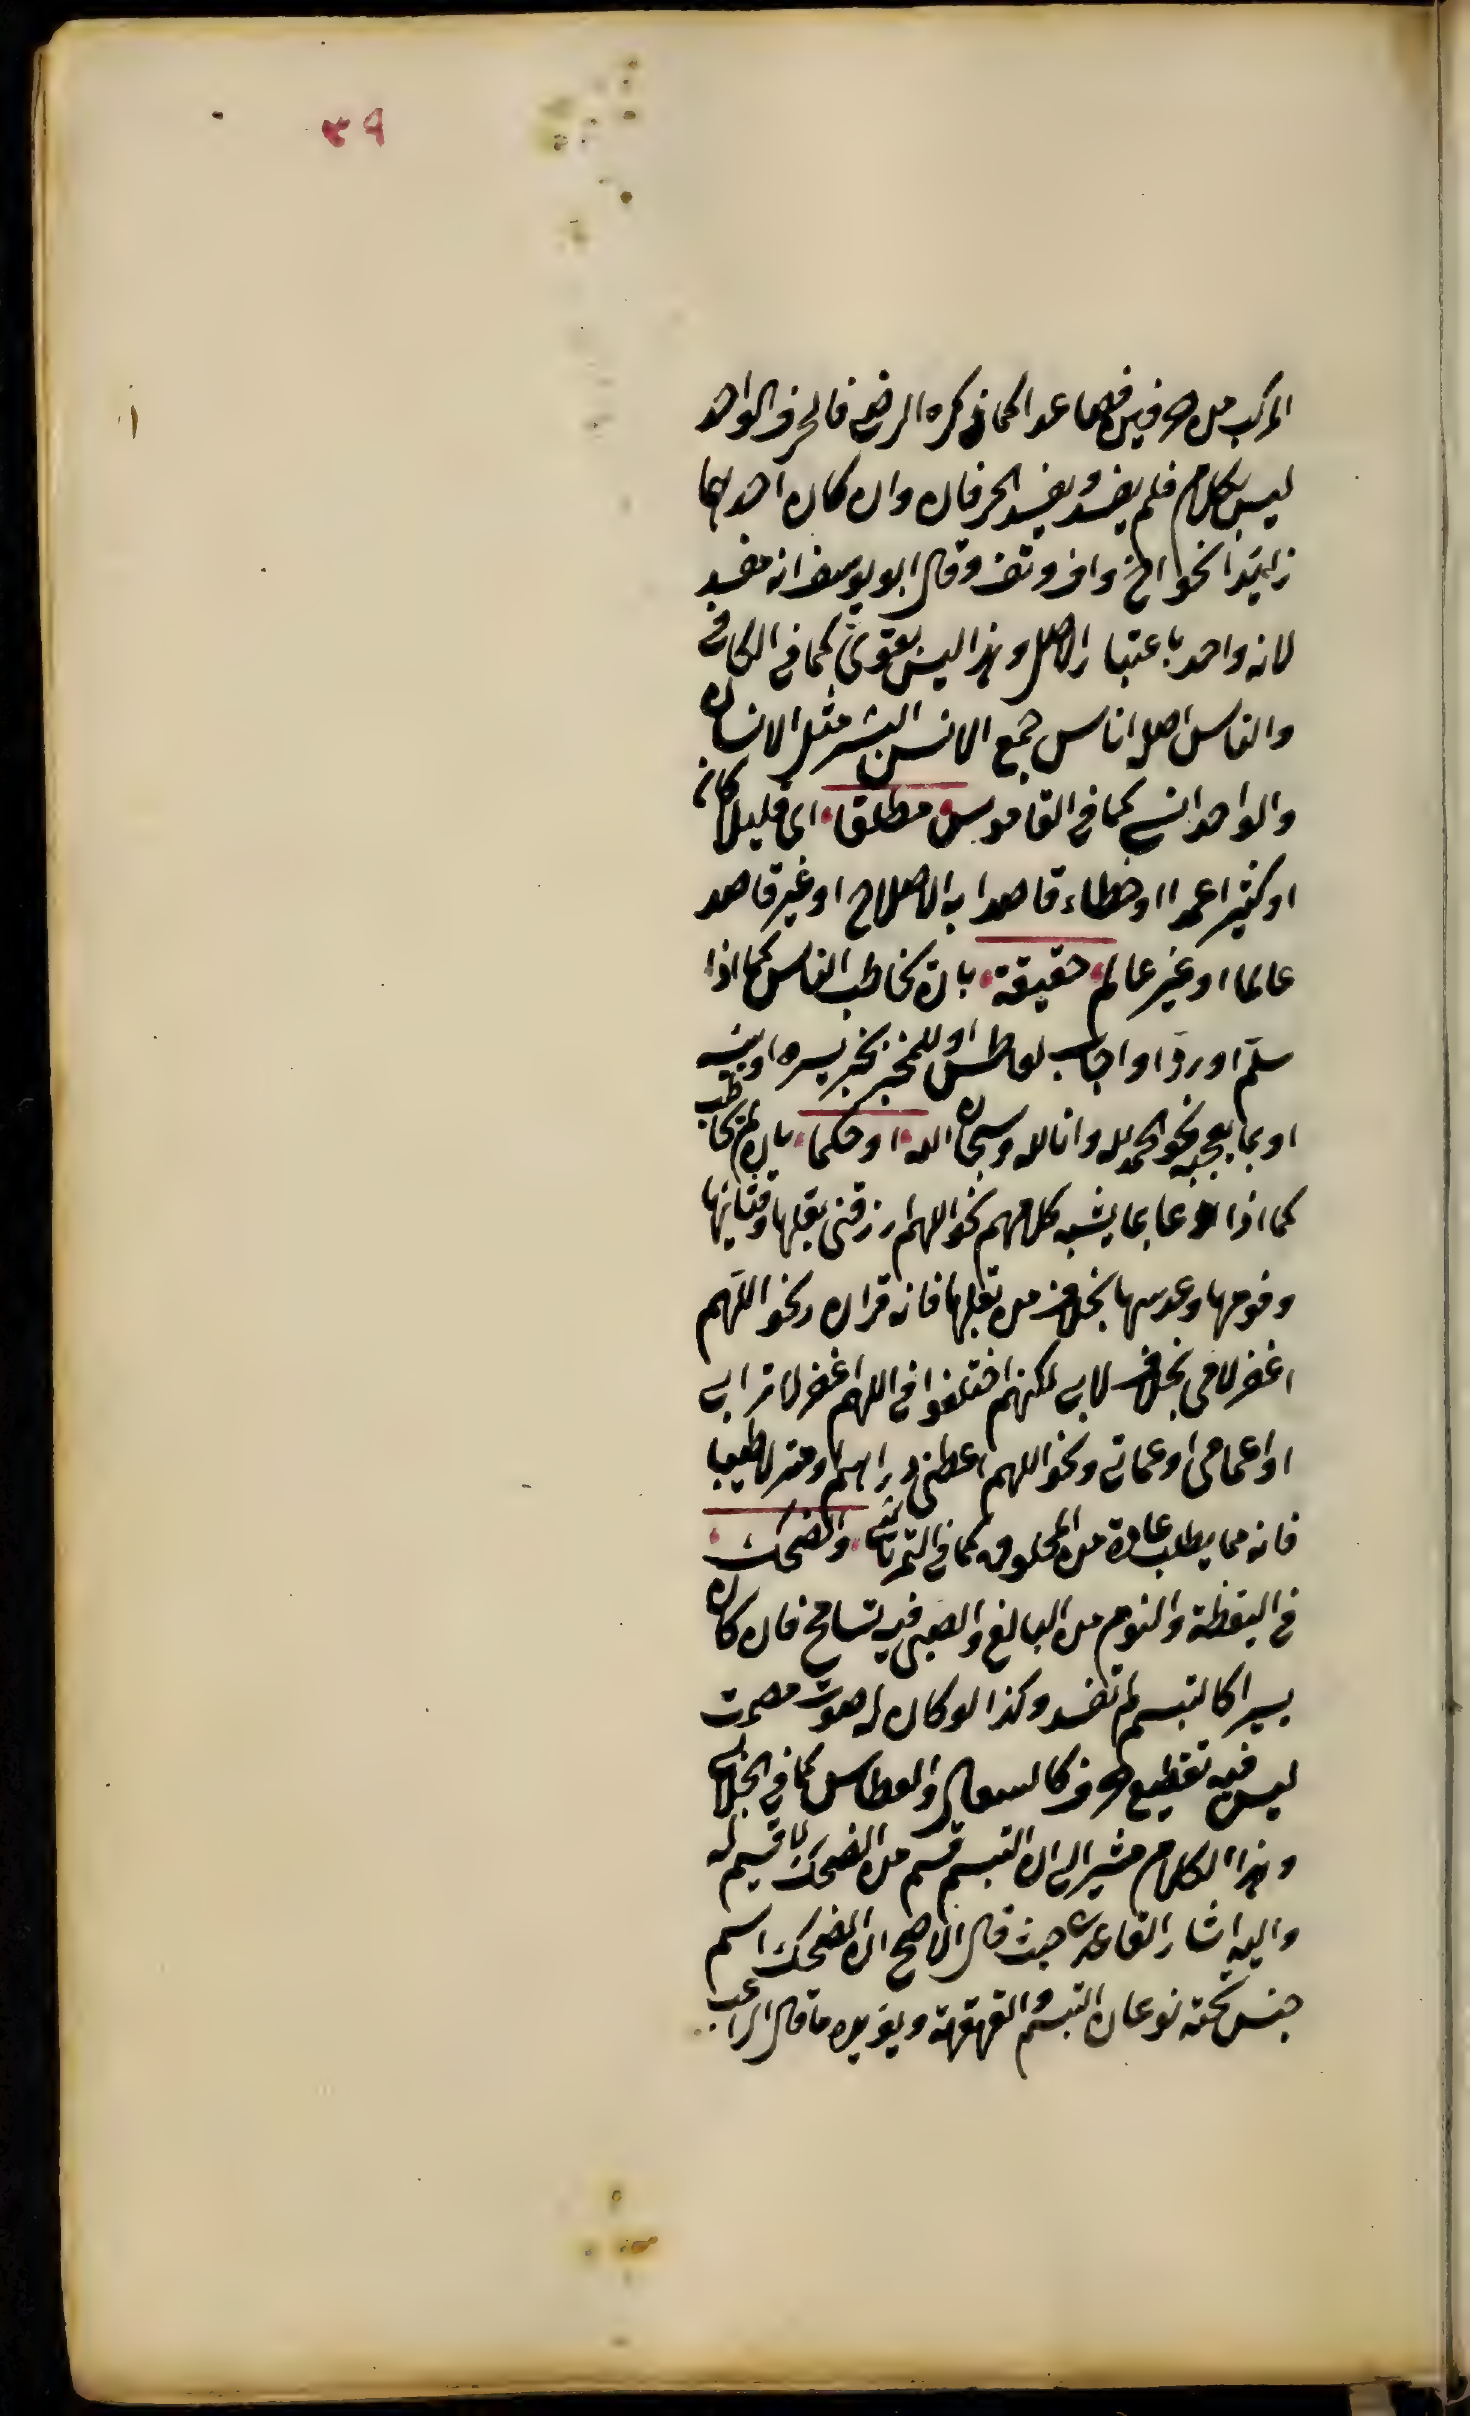 ٣٩
المركب من حرفين فصاعدا كما ذكره الرضي فالحرف الواحد
ليس بكلام فلم يفسد ويفسد الحرفان وان كان احدهما
زايدا نحو اخ واف وتف وقال ابو يوسف انه مفسد
لانه واحد باعتبار الاصل وهذا ليس بقوي كما في الكافي
والناس اصله اناس جمع الانس البشر مثل الانسان
والواحد انسي كما في القاموس مطلقا اي قليلا كان
او كثيرا عمدا او خطاء قاصدا به الاصلاح او غير قاصد
عالما او غير عالم حقيقة بان يخاطب الناس كما اذا
سلم او رد او اجاب لعاطس او للمخبر بخبر يسره او يسوءه
او بما يعجبه نحو الحمد لله وانا لله وسبحان الله او حكما بان لم يخاطب
كما اذا دعا بما يشبه كلامهم نحو اللهم ارزقني بقلها وقثائها
وفومها وعدسها بخلاف من بقلها فانه قران ونحو اللهم
اغفر لامي بخلاف لابي لكنهم اختلفوا في اللهم اغفر لاترابي
او اعمامي او عماتي ونحو اللهم اعطني دراهم ومنزلا طيبا
فانه مما يطلب عادة من المخلوق كما في التمرتاشي والضحك
في اليقظة والنوم من البالغ والصبي فيه تسامح فان كان
يسيرا كالتبسم لم تفسد وكذا لو كان له صوت مصوت
ليس فيه تقطيع حرف كالسعال والعطاس كما في الجلابي
وهذا الكلام مشير الى ان التبسم قسم من الضحك لا قسيم له
واليه اشار القاعدي حيث قال الاصح ان الضحك اسم
جنس تحته نوعان التبسم والقهقهة ويؤيده ما قال الراغب